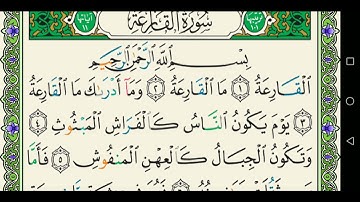 سُورَةُ القَارِعَةِ
ترتيبها ١٠١
آياتها ١١
بِسْمِ اللَّهِ الرَّحْمَٰنِ الرَّحِيمِ
الْقَارِعَةُ ١ مَا الْقَارِعَةُ ٢ وَمَا أَدْرَاكَ مَا الْقَارِعَةُ
٣ يَوْمَ يَكُونُ النَّاسُ كَالْفَرَاشِ الْمَبْثُوثِ ٤
وَتَكُونُ الْجِبَالُ كَالْعِهْنِ الْمَنفُوشِ ٥ فَأَمَّا